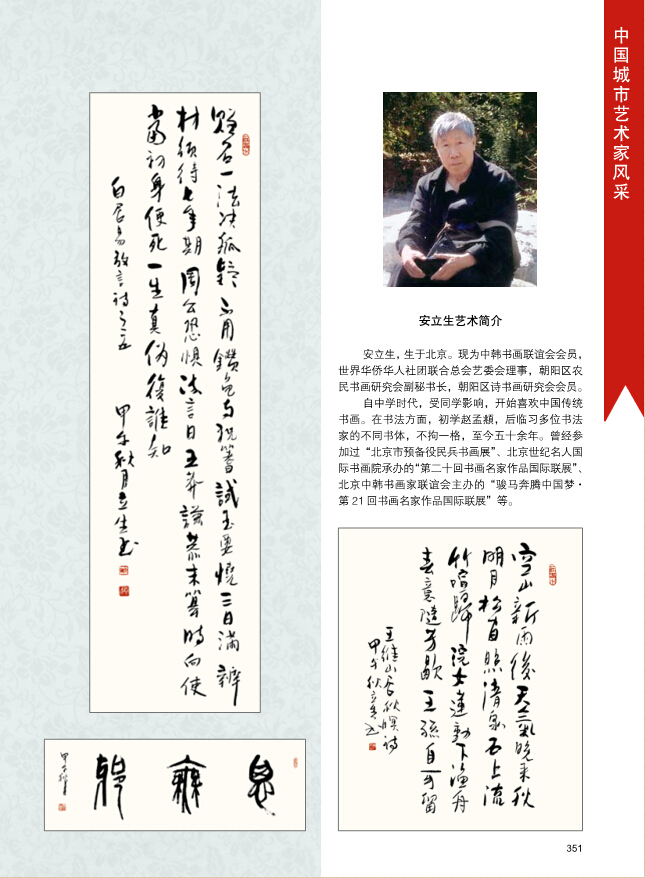 中国城市艺术家风采
贈君一法决狐疑不用鑽龜与祝蓍試玉要燒三日滿辨
材須待七年期周公恐惧流言日王莽謙恭未篡時向使
當初身便死一生真偽復誰知
白居易放言詩之五
甲午秋月立生书
思無邪
安立生艺术简介
安立生，生于北京。现为中韩书画联谊会会员，
世界华侨华人社团联合总会艺委会理事，朝阳区农
民书画研究会副秘书长，朝阳区诗书画研究会会员。
自中学时代，受同学影响，开始喜欢中国传统
书画。在书法方面，初学赵孟頫，后临习多位书法
家的不同书体，不拘一格，至今五十余年。曾经参
加过“北京市预备役民兵书画展”、北京世纪名人国
际书画院承办的“第二十回书画名家作品国际联展”、
北京中韩书画家联谊会主办的“骏马奔腾中国梦·
第21回书画名家作品国际联展”等。
空山新雨後天氣晚来秋
明月松間照清泉石上流
竹喧歸浣女蓮動下漁舟
春意隨芳歇王孫自可留
王維山居秋暝詩
甲午秋立生书
351